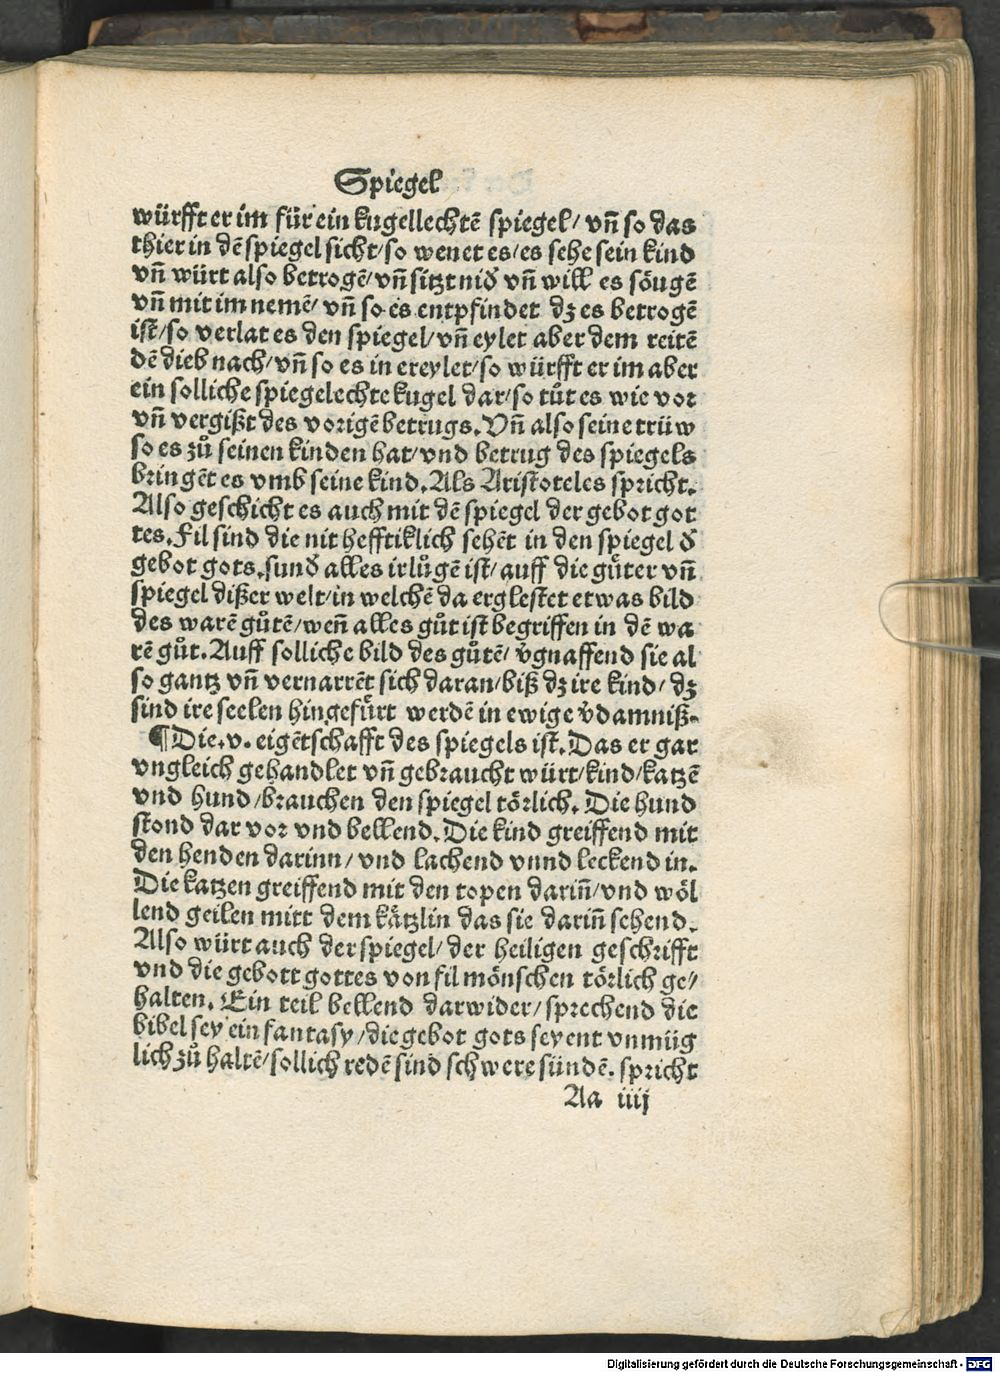 Spiegel
würfft er im für ein kugellechtē spiegel/ vn̄ so das
thier in dē spiegel sicht/so wenet es/es sehe sein kind
vn̄ würt also betrogē/vn̄ sitzt nid̕ vn̄ will es söugē
vn̄ mit im nemē/ vn̄ so es entpfindet dz es betrogē
ist/so verlat es den spiegel/vn̄ eylet aber dem reitē
dē dieb nach/vn̄ so es in ereylet/so würfft er im aber
ein solliche spiegelechte kugel dar/so tůt es wie vor
vn̄ vergißt des vorigē betrugs. Vn̄ also seine trüw
so es zů seinen kinden hat/vnd betrug des spiegels
bringēt es vmb seine kind. Als Aristoteles spricht.
Also geschicht es auch mit dē spiegel der gebot got
tes. Fil sind die nit hefftiklich sehēt in den spiegel d̕
gebot gots. sund̕ alles irlůgē ist/auff die gůter vn̄
spiegel dißer welt/in welchē da erglestet etwas bild
des warē gůtē/wen̄ alles gůt ist begriffen in dē wa
rē gůt. Auff solliche bild des gůtē/ v̕gnaffend sie al
so gantz vn̄ vernarrēt sich daran/biß dz ire kind/ dz
sind ire seelen hingefürt werdē in ewige v̕damniß.
¶Die .v. eigētschafft des spiegels ist. Das er gar
vngleich gehandlet vn̄ gebraucht würt/kind/katzē
vnd hund/brauchen den spiegel törlich. Die hund
stond dar vor vnd bellend. Die kind greiffend mit
den henden darinn/ vnd lachend vnnd leckend in.
Die katzen greiffend mit den topen darin̄/vnd wöl
lend geilen mitt dem kätzlin das sie darin̄ sehend.
Also würt auch der spiegel/ der heiligen geschrifft
vnd die gebott gottes von fil mönschen törlich ge/
halten. Ein teil bellend darwider/sprechend die
bibel sey ein fantasy/die gebot gots seyent vnmüg
lich zů haltē/sollich redē sind schwere sündē. spricht
Aa iiij
Digitalisierung gefördert durch die Deutsche Forschungsgemeinschaft - DFG